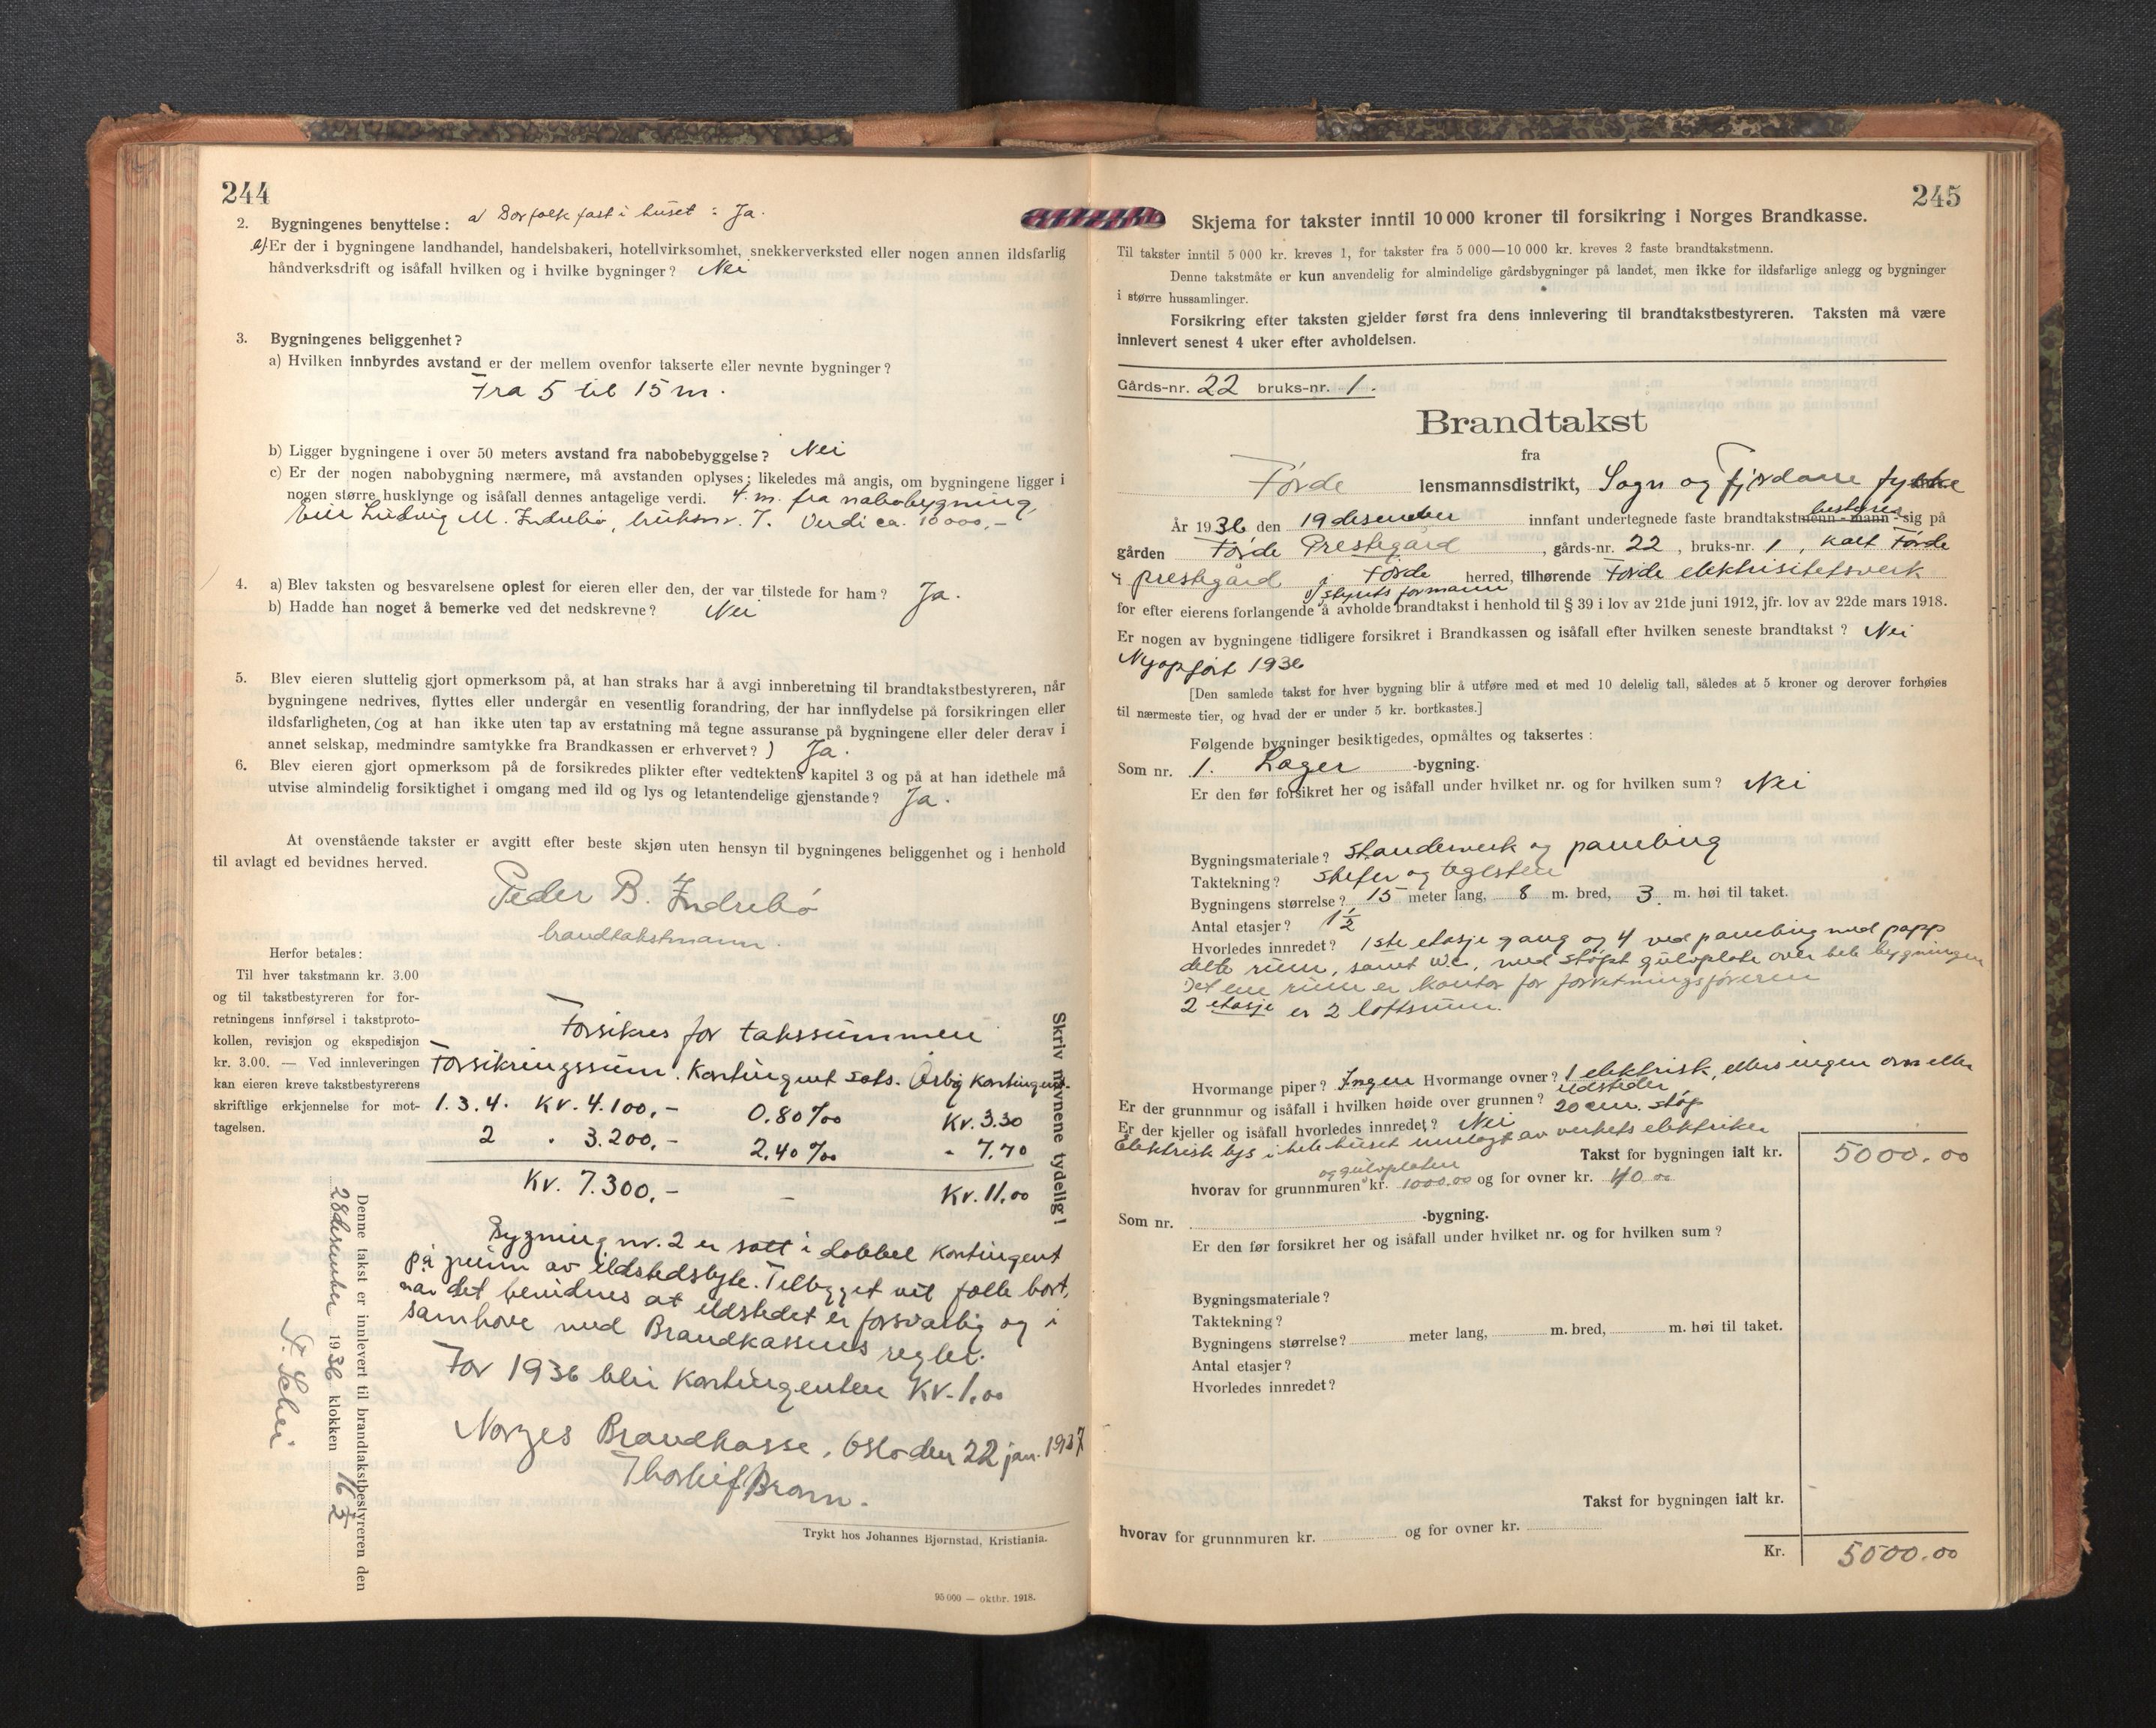 244
2. Bygningenes benyttelse: a) Bor folk fast i huset: Ja.
b) Er der i bygningene landhandel, handelsbakeri, hotellvirksomhet, snekkerverksted eller nogen annen ildsfarlig
håndverksdrift og isåfall hvilken og i hvilke bygninger? Nei
3. Bygningenes beliggenhet?
a) Hvilken innbyrdes avstand er der mellem ovenfor takserte eller nevnte bygninger?
Fra 5 til 15 m.
b) Ligger bygningene i over 50 meters avstand fra nabobebyggelse? Nei
c) Er der nogen nabobygning nærmere, må avstanden oplyses; likeledes må angis, om bygningene ligger i
nogen større husklynge og isåfall dennes antagelige verdi. 4. m. fra nabobygning,
Eier Ludvig M. Indrebø, bruksnr. 7. Verdi ca. 10000,-
4. a) Blev taksten og besvarelsene oplest for eieren eller den, der var tilstede for ham? Ja.
b) Hadde han noget å bemerke ved det nedskrevne? Nei
5. Blev eieren sluttelig gjort opmerksom på, at han straks har å avgi innberetning til brandtakstbestyreren, når
bygningene nedrives, flyttes eller undergår en vesentlig forandring, der har innflydelse på forsikringen eller
ildsfarligheten, (og at han ikke uten tap av erstatning må tegne assuranse på bygningene eller deler derav i
annet selskap, medmindre samtykke fra Brandkassen er erhvervet?) Ja.
6. Blev eieren gjort opmerksom på de forsikredes plikter efter vedtektens kapitel 3 og på at han idethele må
utvise almindelig forsiktighet i omgang med ild og lys og letantendelige gjenstande? Ja.
At ovenstående takster er avgitt efter beste skjøn uten hensyn til bygningenes beliggenhet og i henhold
til avlagt ed bevidnes herved.
Peder B. Indrebö
brandtakstmann.
Herfor betales:
Til hver takstmann kr. 3.00
og til takstbestyreren for for-
retningens innførsel i takstproto-
kollen, revisjon og ekspedisjon
kr. 3.00. — Ved innleveringen
kan eieren kreve takstbestyrerens
skriftlige erkjennelse for mot-
tagelsen.
Forsikres for takssummen
Forsikringssum. Kontingent sats. Årlig Kontingent.
1. 3. 4. Kr. 4.100,- 0.80 ‰ Kr. 3.30
2 " 3.200,- 2.40 ‰ - 7.70
Kr. 7.300,- - Kr. 11.00
Bygning nr. 2 er satt i dobbel Kontingent
på grunn av ildstedslyte. Tillegget vil falle bort,
når det bevidnes at ildstedet er forsvarlig og i
samhøve med Brandkassens regler.
For 1936 blir Kontingenten Kr. 1.00
Norges Brandkasse, Oslo den 22 jan. 1937
Thorleif Bronn.
Skriv navnene tydelig!
Denne takst er innlevert til brandtakstbestyreren den
28 desember 1936 klokken 16
Trykt hos Johannes Bjørnstad, Kristiania.
95 000 — oktbr. 1918.
245
Skjema for takster inntil 10 000 kroner til forsikring i Norges Brandkasse.
Til takster inntil 5 000 kr. kreves 1, for takster fra 5 000—10 000 kr. kreves 2 faste brandtakstmenn.
Denne takstmåte er kun anvendelig for almindelige gårdsbygninger på landet, men ikke for ildsfarlige anlegg og bygninger
i større hussamlinger.
Forsikring efter taksten gjelder først fra dens innlevering til brandtakstbestyreren. Taksten må være
innlevert senest 4 uker efter avholdelsen.
Gårds-nr. 22 bruks-nr. 1.
Brandtakst
fra
Förde lensmannsdistrikt, Sogn og Fjordane fylke
År 1936 den 19 desember innfant undertegnede faste brandtakstmenn - mann - bestyrer sig på
gården Förde Prestegård, gårds-nr. 22, bruks-nr. 1, kalt Förde
prestegård i Förde herred, tilhørende Förde elektrisitetsverk
v/ styrets formann
for efter eierens forlangende å avholde brandtakst i henhold til § 39 i lov av 21de juni 1912, jfr. lov av 22de mars 1918.
Er nogen av bygningene tidligere forsikret i Brandkassen og isåfall efter hvilken seneste brandtakst? Nei
Nyopfört 1936
[Den samlede takst for hver bygning blir å utføre med et med 10 delelig tall, således at 5 kroner og derover forhøies
til nærmeste tier, og hvad der er under 5 kr. bortkastes.]
Følgende bygninger besiktigedes, opmåltes og taksertes:
Som nr. 1. Lager -bygning.
Er den før forsikret her og isåfall under hvilket nr. og for hvilken sum? Nei
Bygningsmateriale? standerverk og paneling
Taktekning? skifer og teglsten
Bygningens størrelse? 15 meter lang, 8 m. bred, 3. m. høi til taket.
Antal etasjer? 1½
Hvorledes innredet? 1ste etasje gang og 4 ved paneling med papp
delte rum, samt w.c., med støpt gulvplate over hele bygningen
Det ene rum er kontor for forretningsföreren
2 etasje er 2 loftsrum.
Hvormange piper? Ingen Hvormange ovner? 1 elektrisk, ellers ingen ovn eller
ildsteder
Er der grunnmur og isåfall i hvilken høide over grunnen? 20 cm. støp
Er der kjeller og isåfall hvorledes innredet? Nei
Elektrisk lys i hele huset innlagt av verkets elektriker
Takst for bygningen ialt kr. 5000.00
og gulvplaten
hvorav for grunnmuren kr. 1000.00 og for ovner kr. 40.00
Som nr. -bygning.
Er den før forsikret her og isåfall under hvilket nr. og for hvilken sum?
Bygningsmateriale?
Taktekning?
Bygningens størrelse? meter lang, m. bred, m. høi til taket.
Antal etasjer?
Hvorledes innredet?
Takst for bygningen ialt kr.
hvorav for grunnmuren kr. og for ovner kr.
Kr. 5000.00